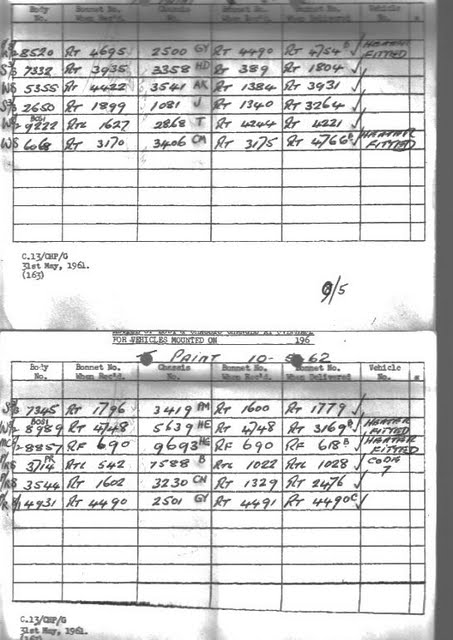 Body No. Bonnet No. When Rec'd. Chassis No. Bonnet No. Bonnet No. When Delivered Vehicle No.
8520 RT 4695 2500 GY RT 4490 RT 4754 B ✓ HEATER FITTED
7332 RT 3935 3358 HD RT 389 RT 1804 ✓
W5 5355 RT 4422 3541 AK RT 1384 RT 3931 ✓
2650 RT 1899 1081 J RT 1340 RT 3264 ✓
9222 RTL 1627 2868 T RT 4244 RT 4221 ✓
W5 6068 RT 3170 3406 CM RT 3175 RT 4766 B ✓ HEATER FITTED
C.13/CHF/G
31st May, 1961.
(163)
9/5
FOR VEHICLES MOUNTED ON 196
TO PAINT 10-5-62
Body No. Bonnet No. When Rec'd. Chassis No. Bonnet No. When Rec'd. Bonnet No. When Delivered Vehicle No.
7345 RT 1796 3419 RT 1600 RT 1779 ✓
8989 RT 4748 5639 HE RT 4748 RT 3169 ✓ HEATER FITTED
8857 RF 690 9693 HG RF 690 RF 618 B ✓ HEATER FITTED
3714 RTL 542 7588 B RTL 1022 RTL 1028 ✓ CODE 7
3544 RT 1602 3230 CN RT 1329 RT 2476 ✓
4931 RT 4490 2501 GY RT 4491 RT 4490 C ✓
C.13/CHF/G
31st May, 1961.